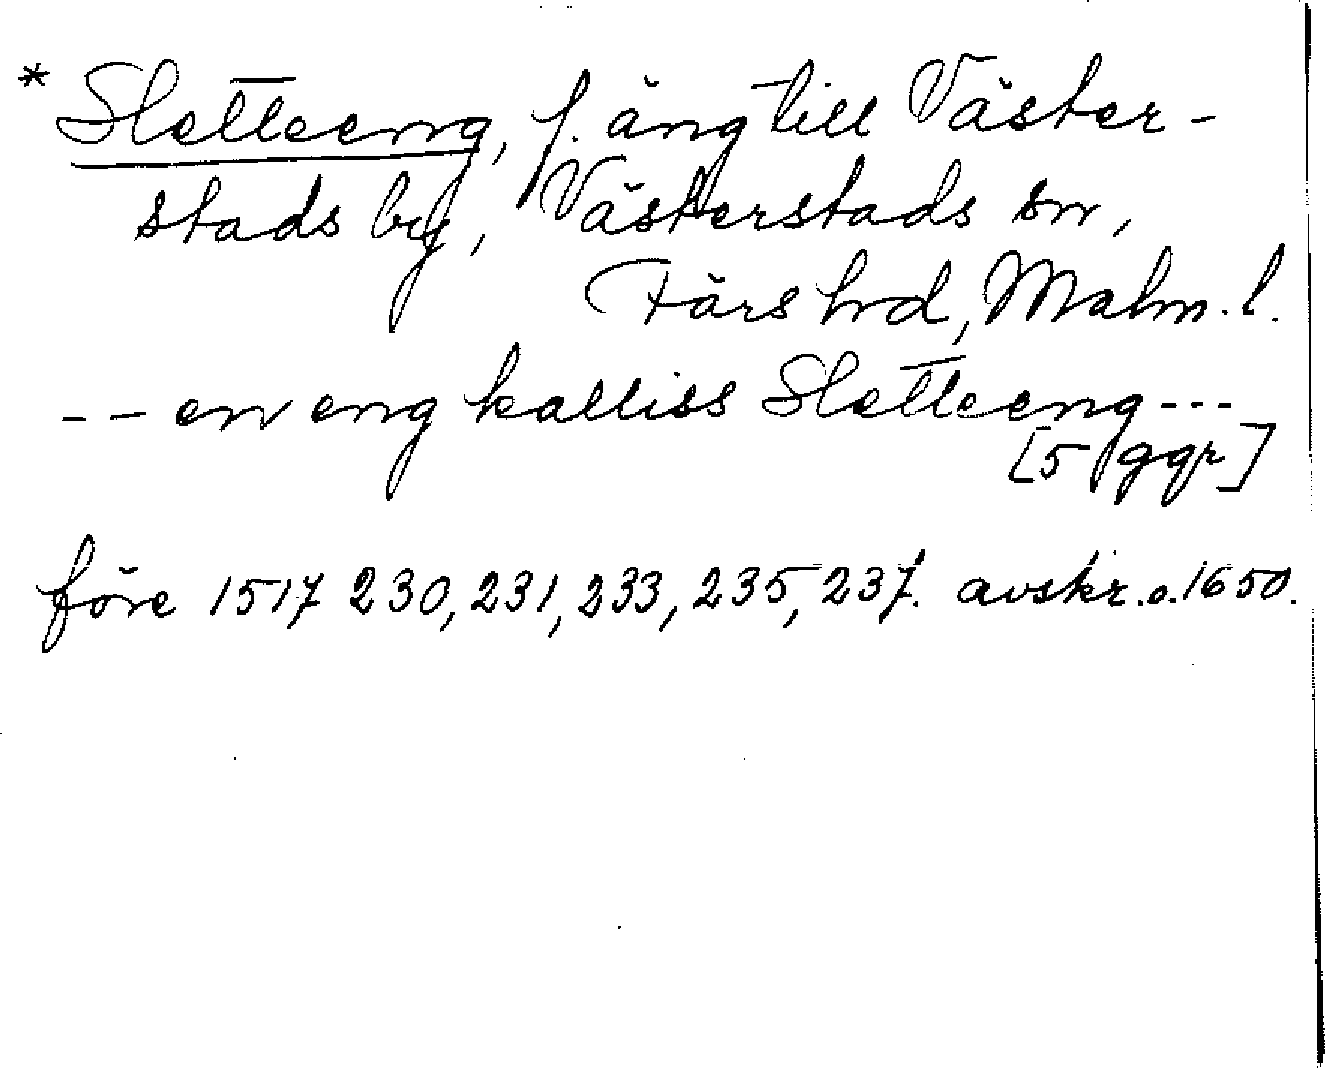 * Sletteeng, f. äng till Väster-
stads by, Västerstads sn,
Färs hd, Malm. l.
-- en eng kalliss Sletteeng ---
[5 ggr]
före 1517 230, 231, 233, 235, 237. avskr. o. 1650.